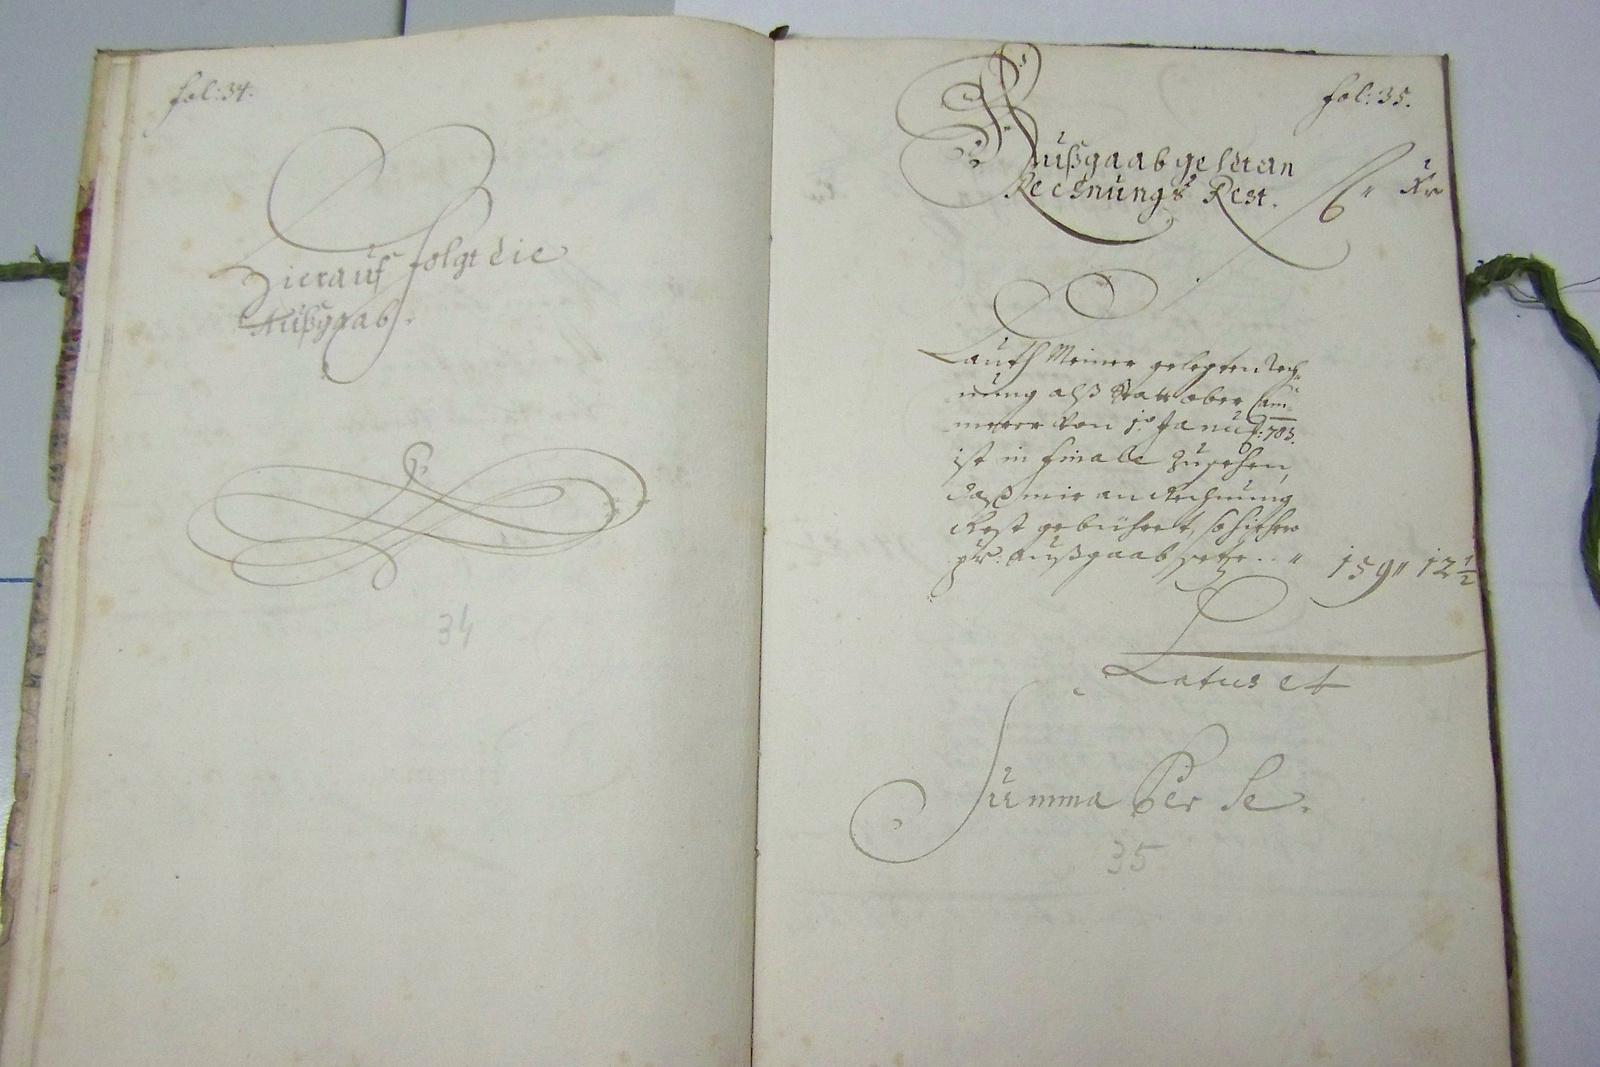 fol: 34.
Hierauf folgt die
Außgaab.
34
fol: 35.
Außgaab geld an
Rechnungs Rest.
f" Kr
Lauth Meiner gelegten Rech-
nung alß Statt ober Cam-
merer von 1. Januj: 703.
ist in finale zusehen,
daß mir an Rechnung
Rest gebühret, so hiehero
pr: Außgaab seze .. " 159" 12 1/2
Latus et
Summa Per Se.
35